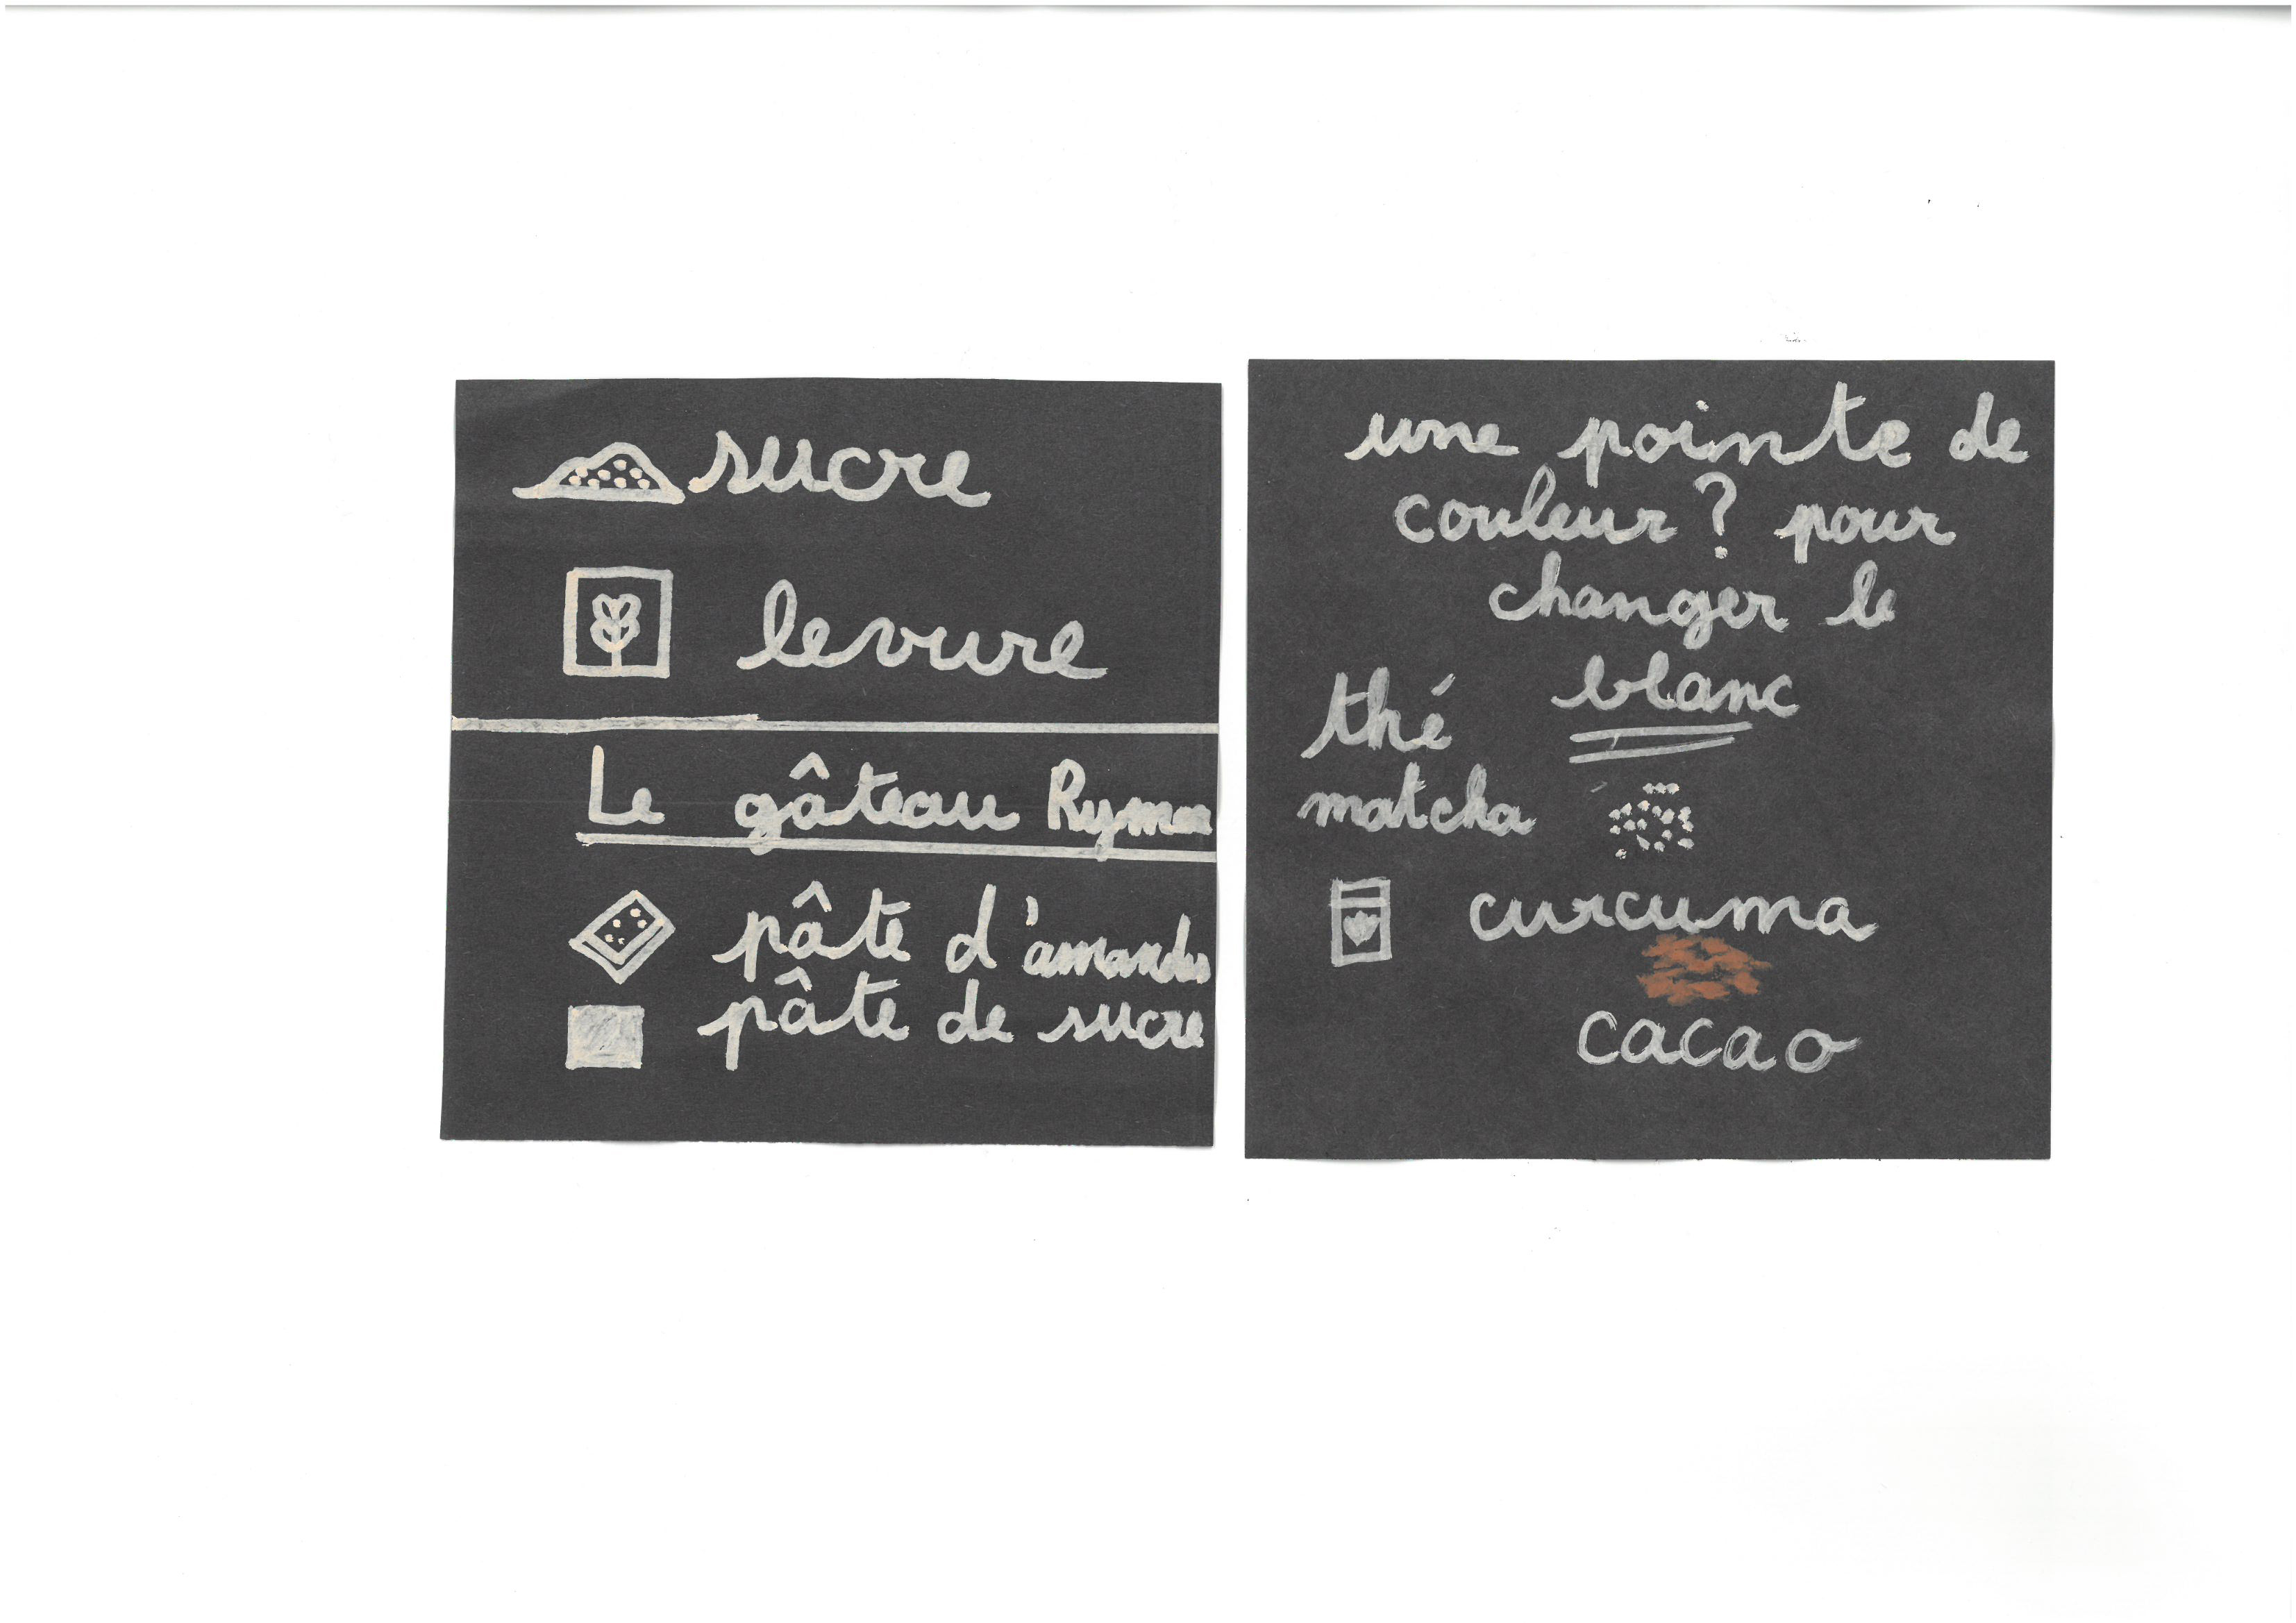 sucre
levure
Le gâteau
pâte d'amandes
pâte de sucre
une pointe de
couleur ? pour
changer le
blanc
thé
matcha
curcuma
cacao